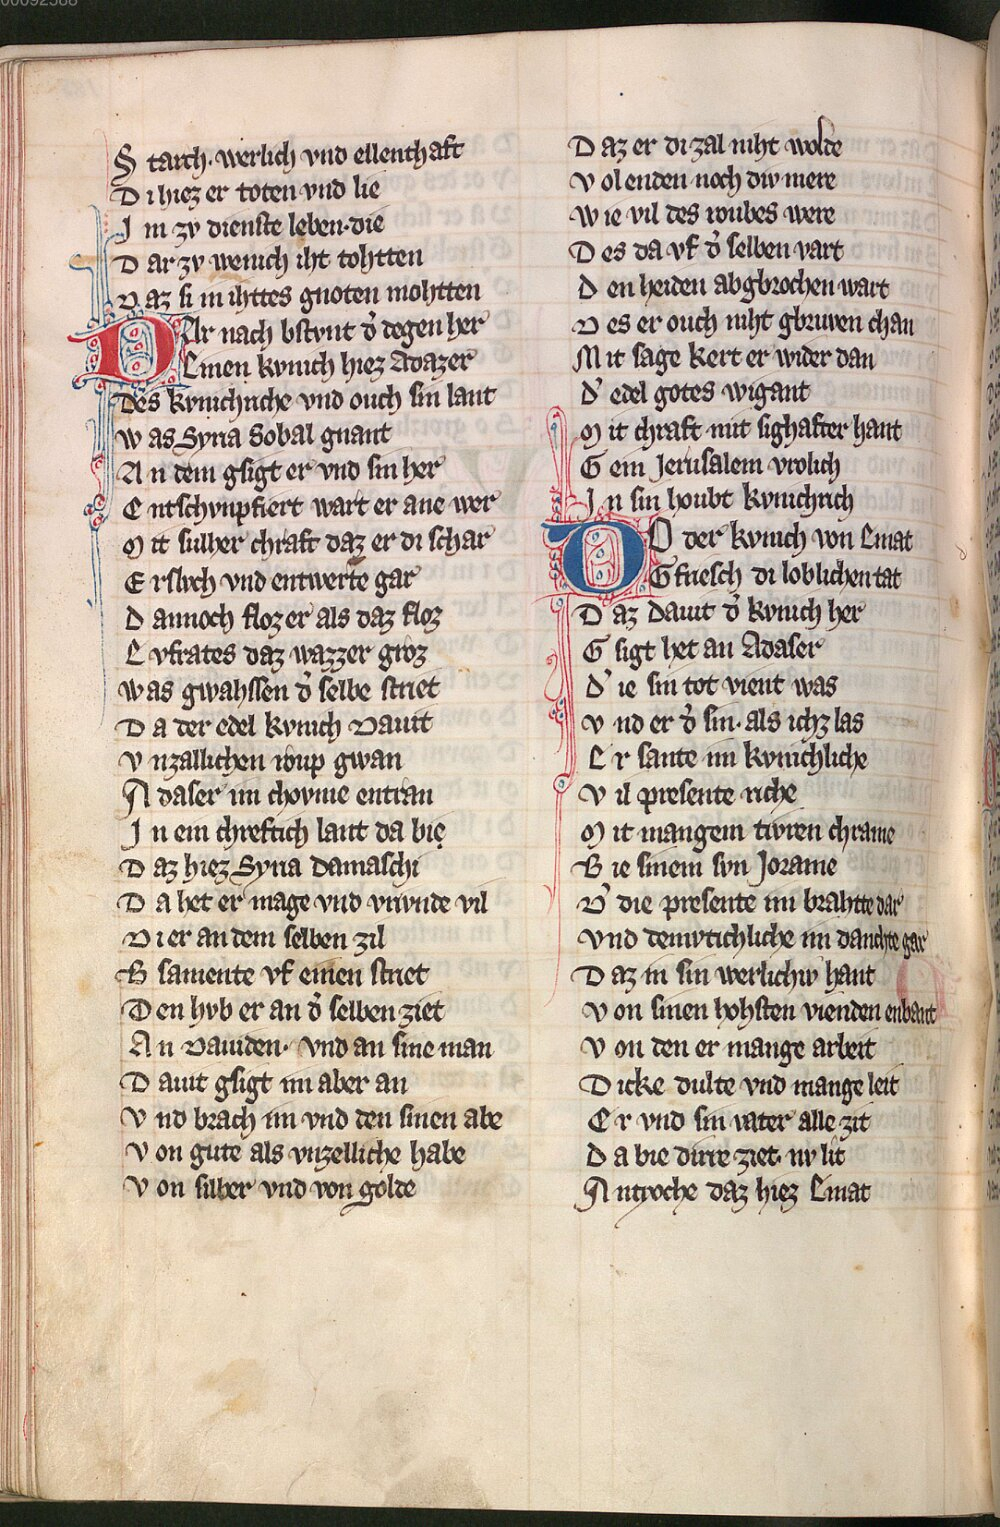 00092588
S tarch. werlich vnd ellenthaft
D i hiez er toten vnd lie
J m zv dienste leben. die
D ar zv wenich iht tohtten
D az si in ihttes gnoten mohtten
DAr nach bstvnt d̉ degen her
Einen kvnich hiez Adazer
Des kvnichriche vnd ouch sin lant
W as Syria Sobal gnant
A n dem gsigt er vnd sin her
E ntschvnpfiert wart er ane wer
M it sulher chraft daz er di schar
E rslvch vnd entwerte gar
D annoch floz er als daz floz
E vfrates daz wazzer groz
W as gwahssen d̉ selbe striet
D a der edel kvnich Dauit
V nzallichen rovp gwan
A daser im chovme entran
J n ein chreftich lant da bie
D az hiez Syria Damaschi
D a het er mage vnd vrivnde vil
D i er an dem selben zil
B samente vf einen striet
D en hvb er an d̉ selben ziet
A n Dauiden. vnd an sine man
D auit gsigt im aber an
V nd brach im vnd den sinen abe
V on gute als vnzelliche habe
V on silber vnd von golde
D az er di zal niht wolde
V olenden noch div mere
W ie vil des roubes were
D es da vf d̉ selben vart
D en heiden abgbrochen wart
D es er ouch niht gbruven chan
M it sage kert er wider dan
D̉ edel gotes wigant
M it chraft mit sighafter hant
G ein Jerusalem vrolich
J n sin houbt kvnichrich
DO der kvnich von Emat
Gfriesch di loblichen tat
D az Dauit d̉ kvnich her
G sigt het an Adaser
D̉ ie sin tot vient was
V nd er d̉ sin. als ichz las
E r sante im kvnichliche
V il presente riche
M it mangem tivren chrame
B ie sinem svn Jorame
D̉ die presente im brahtte dar
Vnd demvtichliche im danchte gar
D az in sin werlichiv hant
V on sinen hohsten vienden enbant
V on den er mange arbeit
D icke dulte vnd mange leit
E r vnd sin vater alle zit
D a bie dirre ziet. nv lit
A ntyoche daz hiez Emat